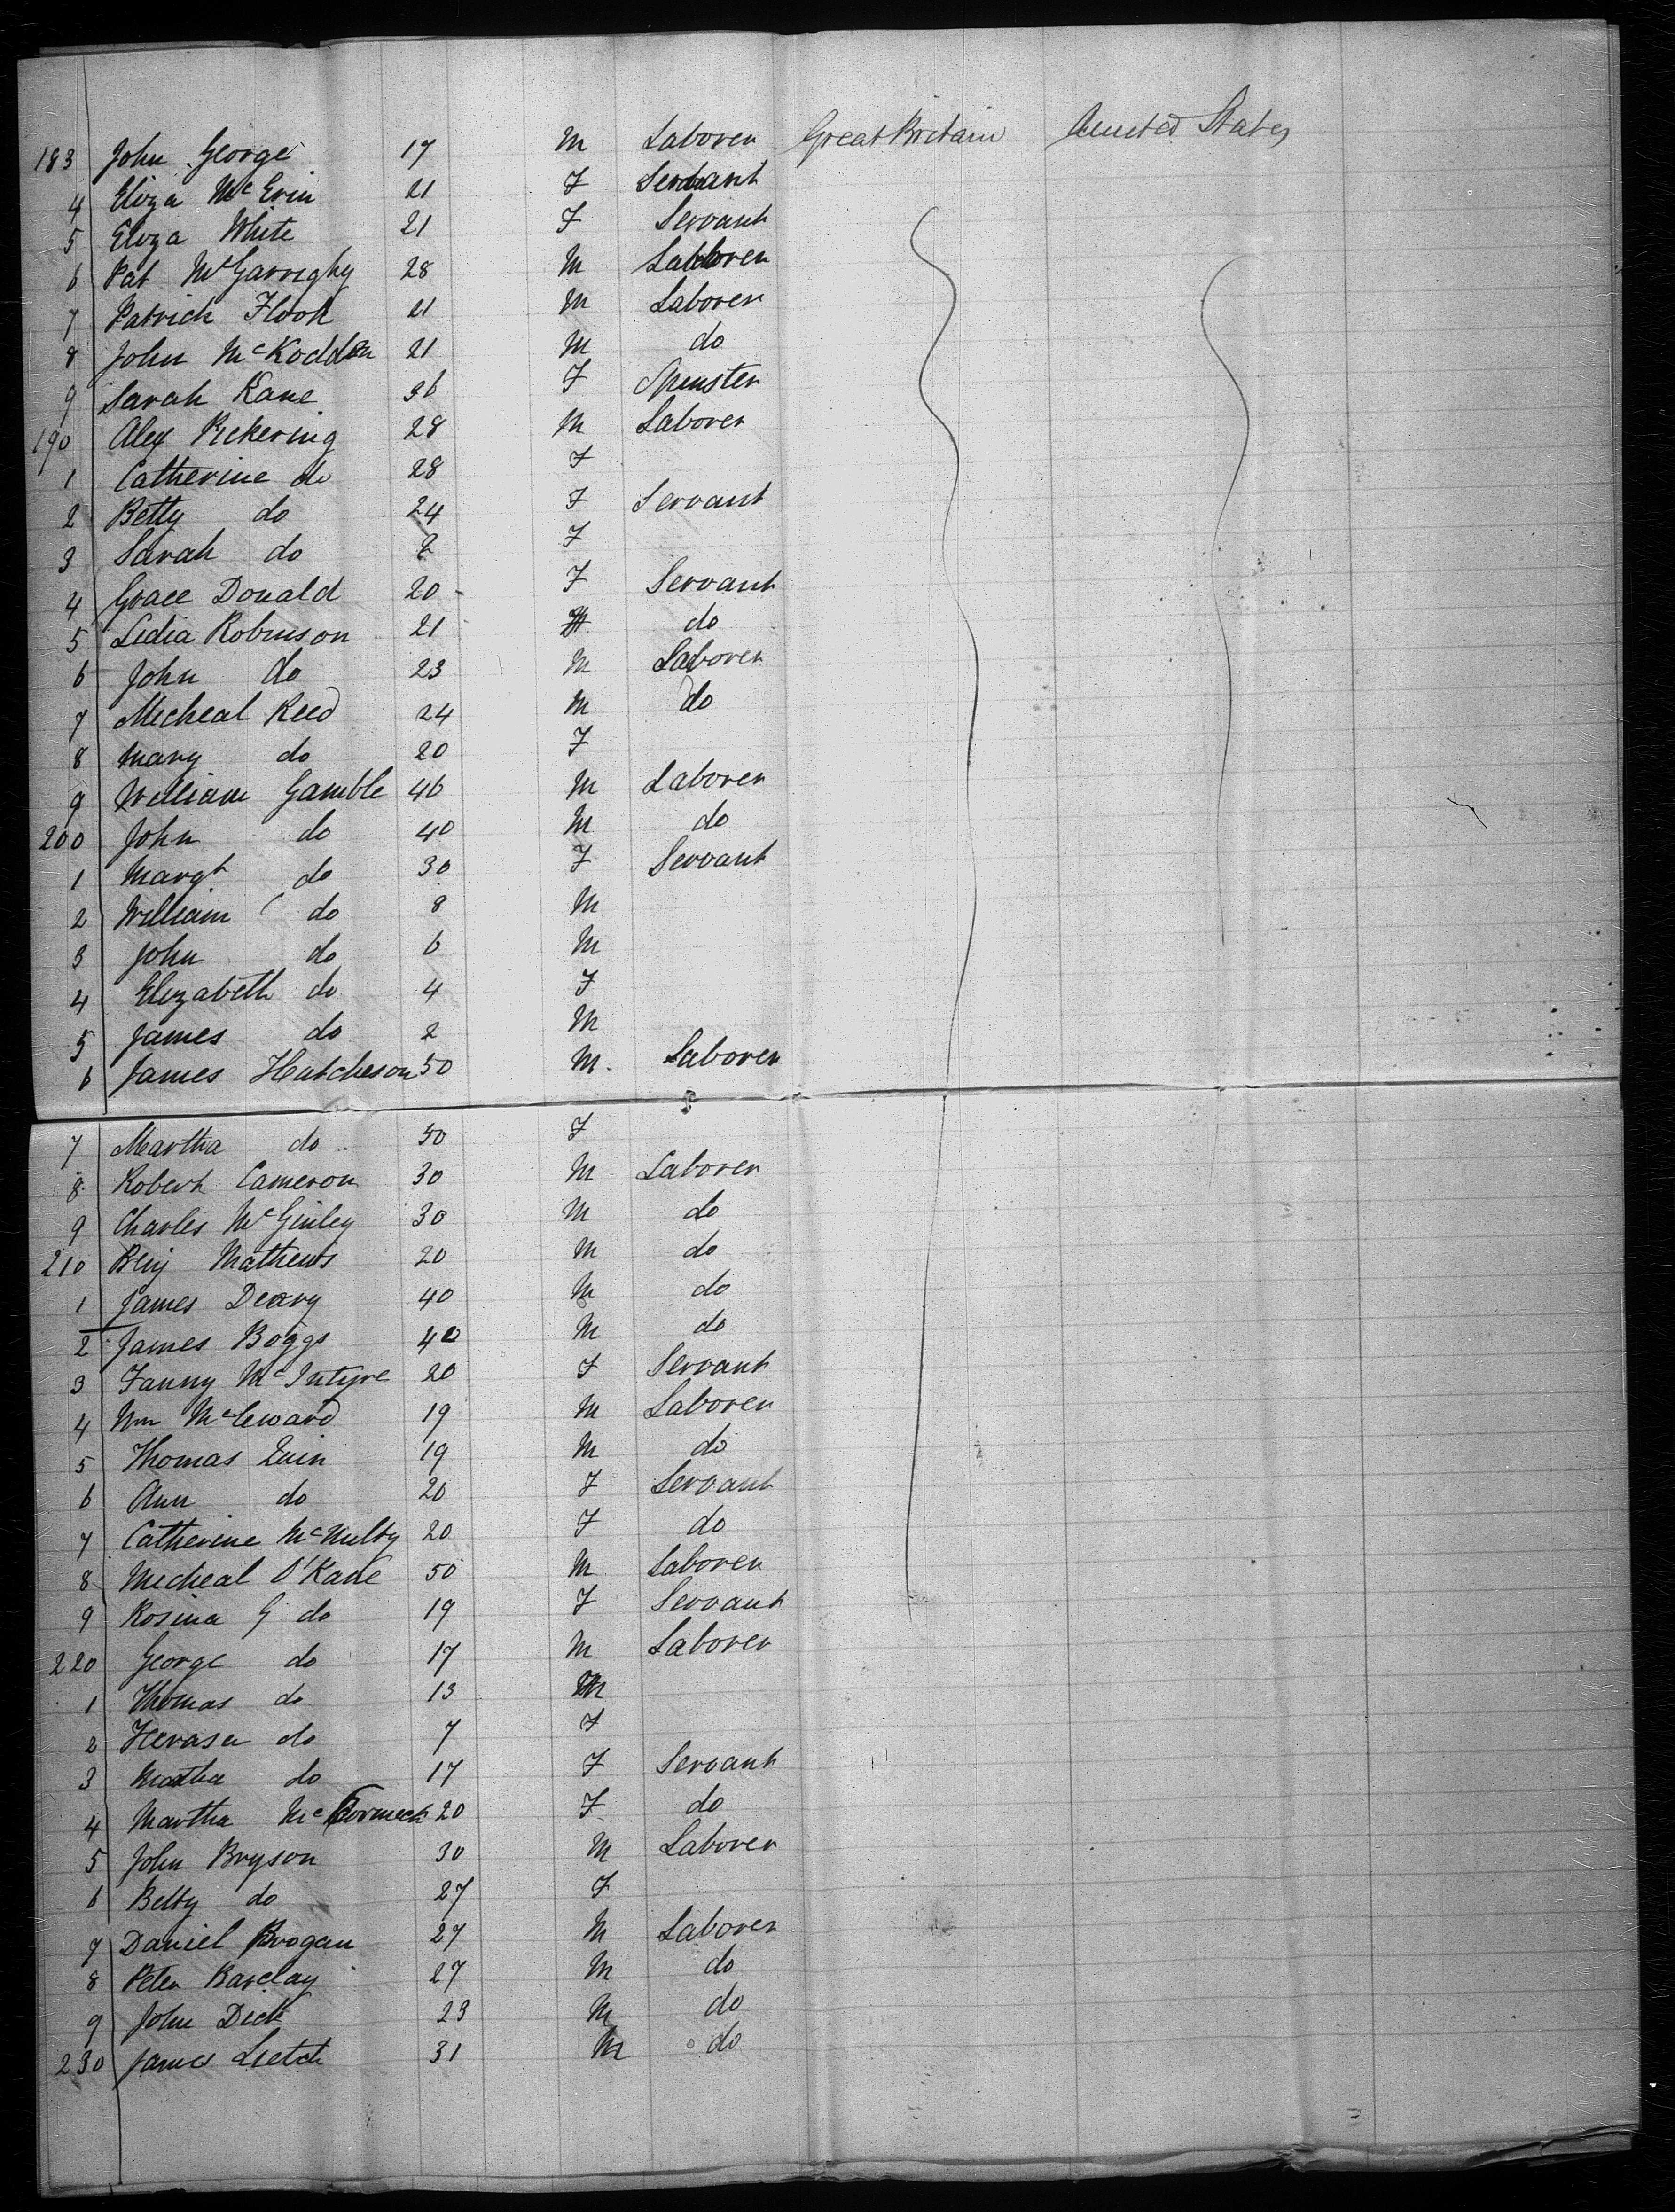 183 John George 17 M Laborer Great Britain United States
4 Eliza McErin 21 F Servant
5 Eliza White 21 F Servant
6 Pat McGarrighy 28 M Laborer
7 Patrick Flook 21 M Laborer
8 John McKodden 21 M do
9 Sarah Kane 36 F Spinster
190 Alex Pickering 28 M Laborer
1 Catherine do 28 F
2 Betty do 24 F Servant
3 Sarah do 2 F
4 Grace Donald 20 F Servant
5 Lidia Robinson 21 F do
6 John do 23 M Laborer
7 Micheal Reed 24 M do
8 Mary do 20 F
9 William Gamble 46 M Laborer
200 John do 40 M do
1 Margt do 30 F Servant
2 William do 8 M
3 John do 6 M
4 Elizabeth do 4 F
5 James do 2 M
6 James Hutcheson 50 M. Laborer
7 Martha do 50 F
8 Robert Cameron 30 M Laborer
9 Charles McGinley 30 M do
210 Benj Mathews 20 M do
1 James Deary 40 M do
2 James Boggs 40 M do
3 Fanny McIntyre 20 F Servant
4 Wm 19 M Laborer
5 Thomas Quin 19 M do
6 Ann do 20 F Servant
7 Catherine McNulty 20 F do
8 Micheal O'Kane 50 M Laborer
9 Rosina G do 19 F Servant
220 George do 17 M Laborer
1 Thomas do 13 M
2 do 7 F
3 Martha do 17 F Servant
4 Martha McCormick 20 F do
5 John Bryson 30 M Laborer
6 Betty do 27 F
7 Daniel Brogan 27 M Laborer
8 Peter Barclay 27 M do
9 John Dick 23 M do
230 James Lietch 31 M do